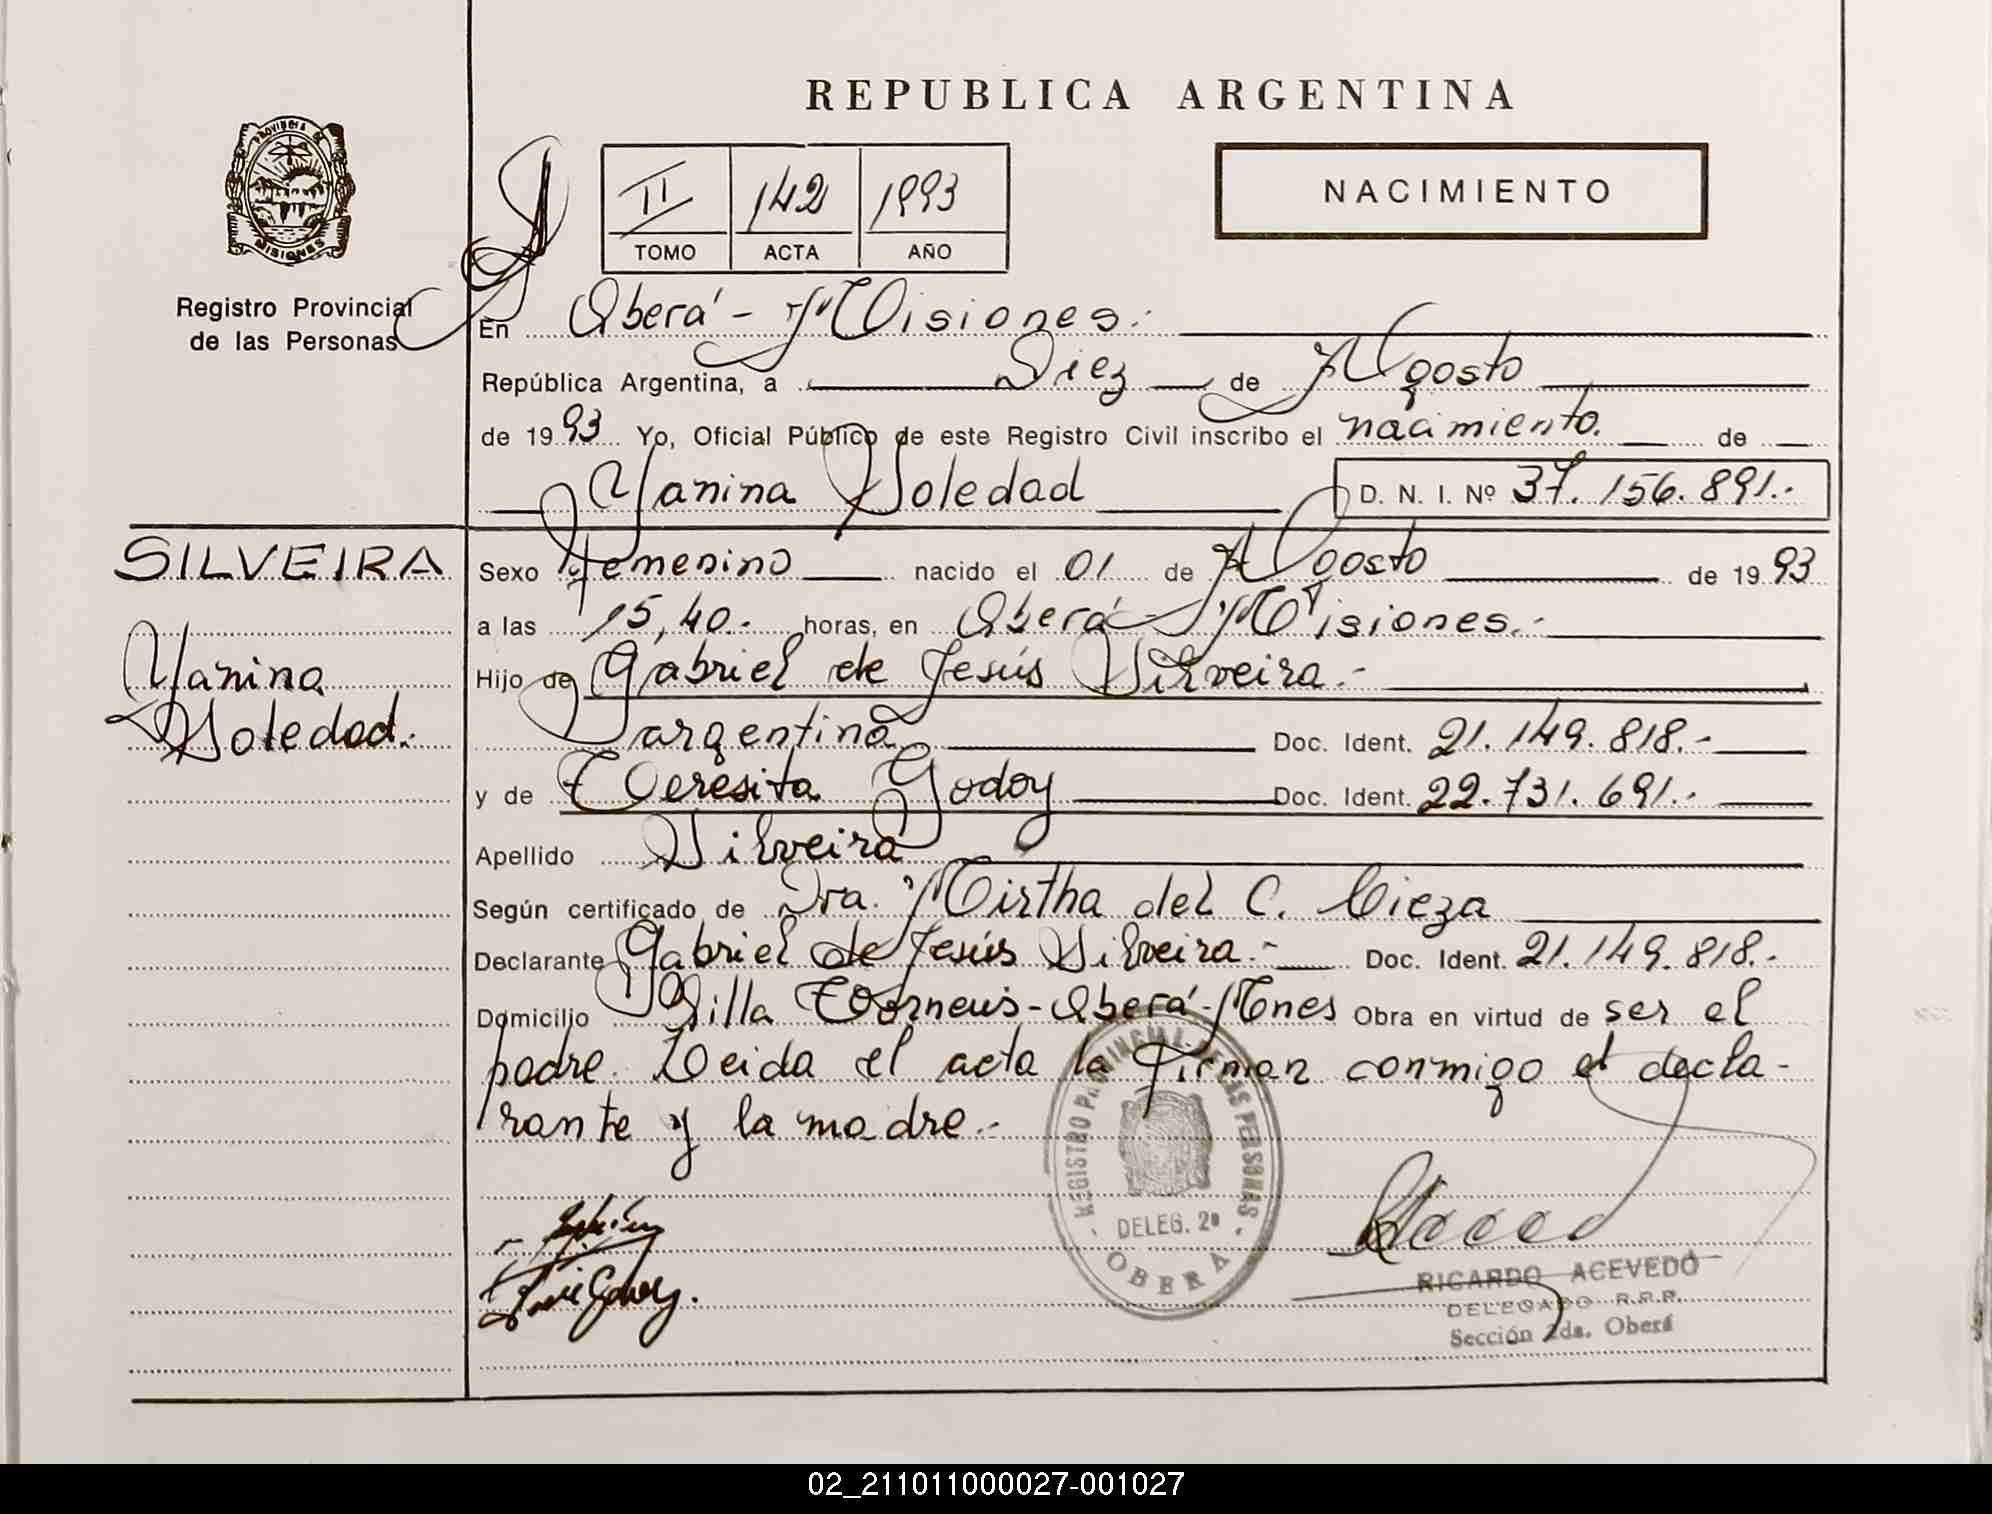 REPUBLICA ARGENTINA
PROVINCIA DE
MISIONES
Registro Provincial
de las Personas
II 142 1993
TOMO ACTA AÑO
NACIMIENTO
En Oberá - Misiones.
República Argentina, a Diez de Agosto
de 1993 Yo, Oficial Público de este Registro Civil inscribo el nacimiento. de
Yanina Soledad D. N. I. Nº 37.156.891.-
SILVEIRA
Yanina
Soledad.
Sexo femenino nacido el 01 de Agosto de 1993
a las 15,40.- horas, en Oberá - Misiones.-
Hijo de Gabriel de Jesús Silveira.-
argentina Doc. Ident. 21.149.818.-
y de Teresita Godoy Doc. Ident. 22.731.691.-
Apellido Silveira
Según certificado de Dra. Mirtha del C. Cieza
Declarante Gabriel de Jesús Silveira.- Doc. Ident. 21.149.818.-
Domicilio Villa - Oberá - Mnes Obra en virtud de ser el
padre. Leida el acta la firman conmigo el decla-
rante y la madre.-
REGISTRO PROVINCIAL DE LAS PERSONAS
DELEG. 2ª
OBERA
RICARDO ACEVEDO
DELEGADO R.P.P.
Sección 2da. Oberá
02_211011000027-001027